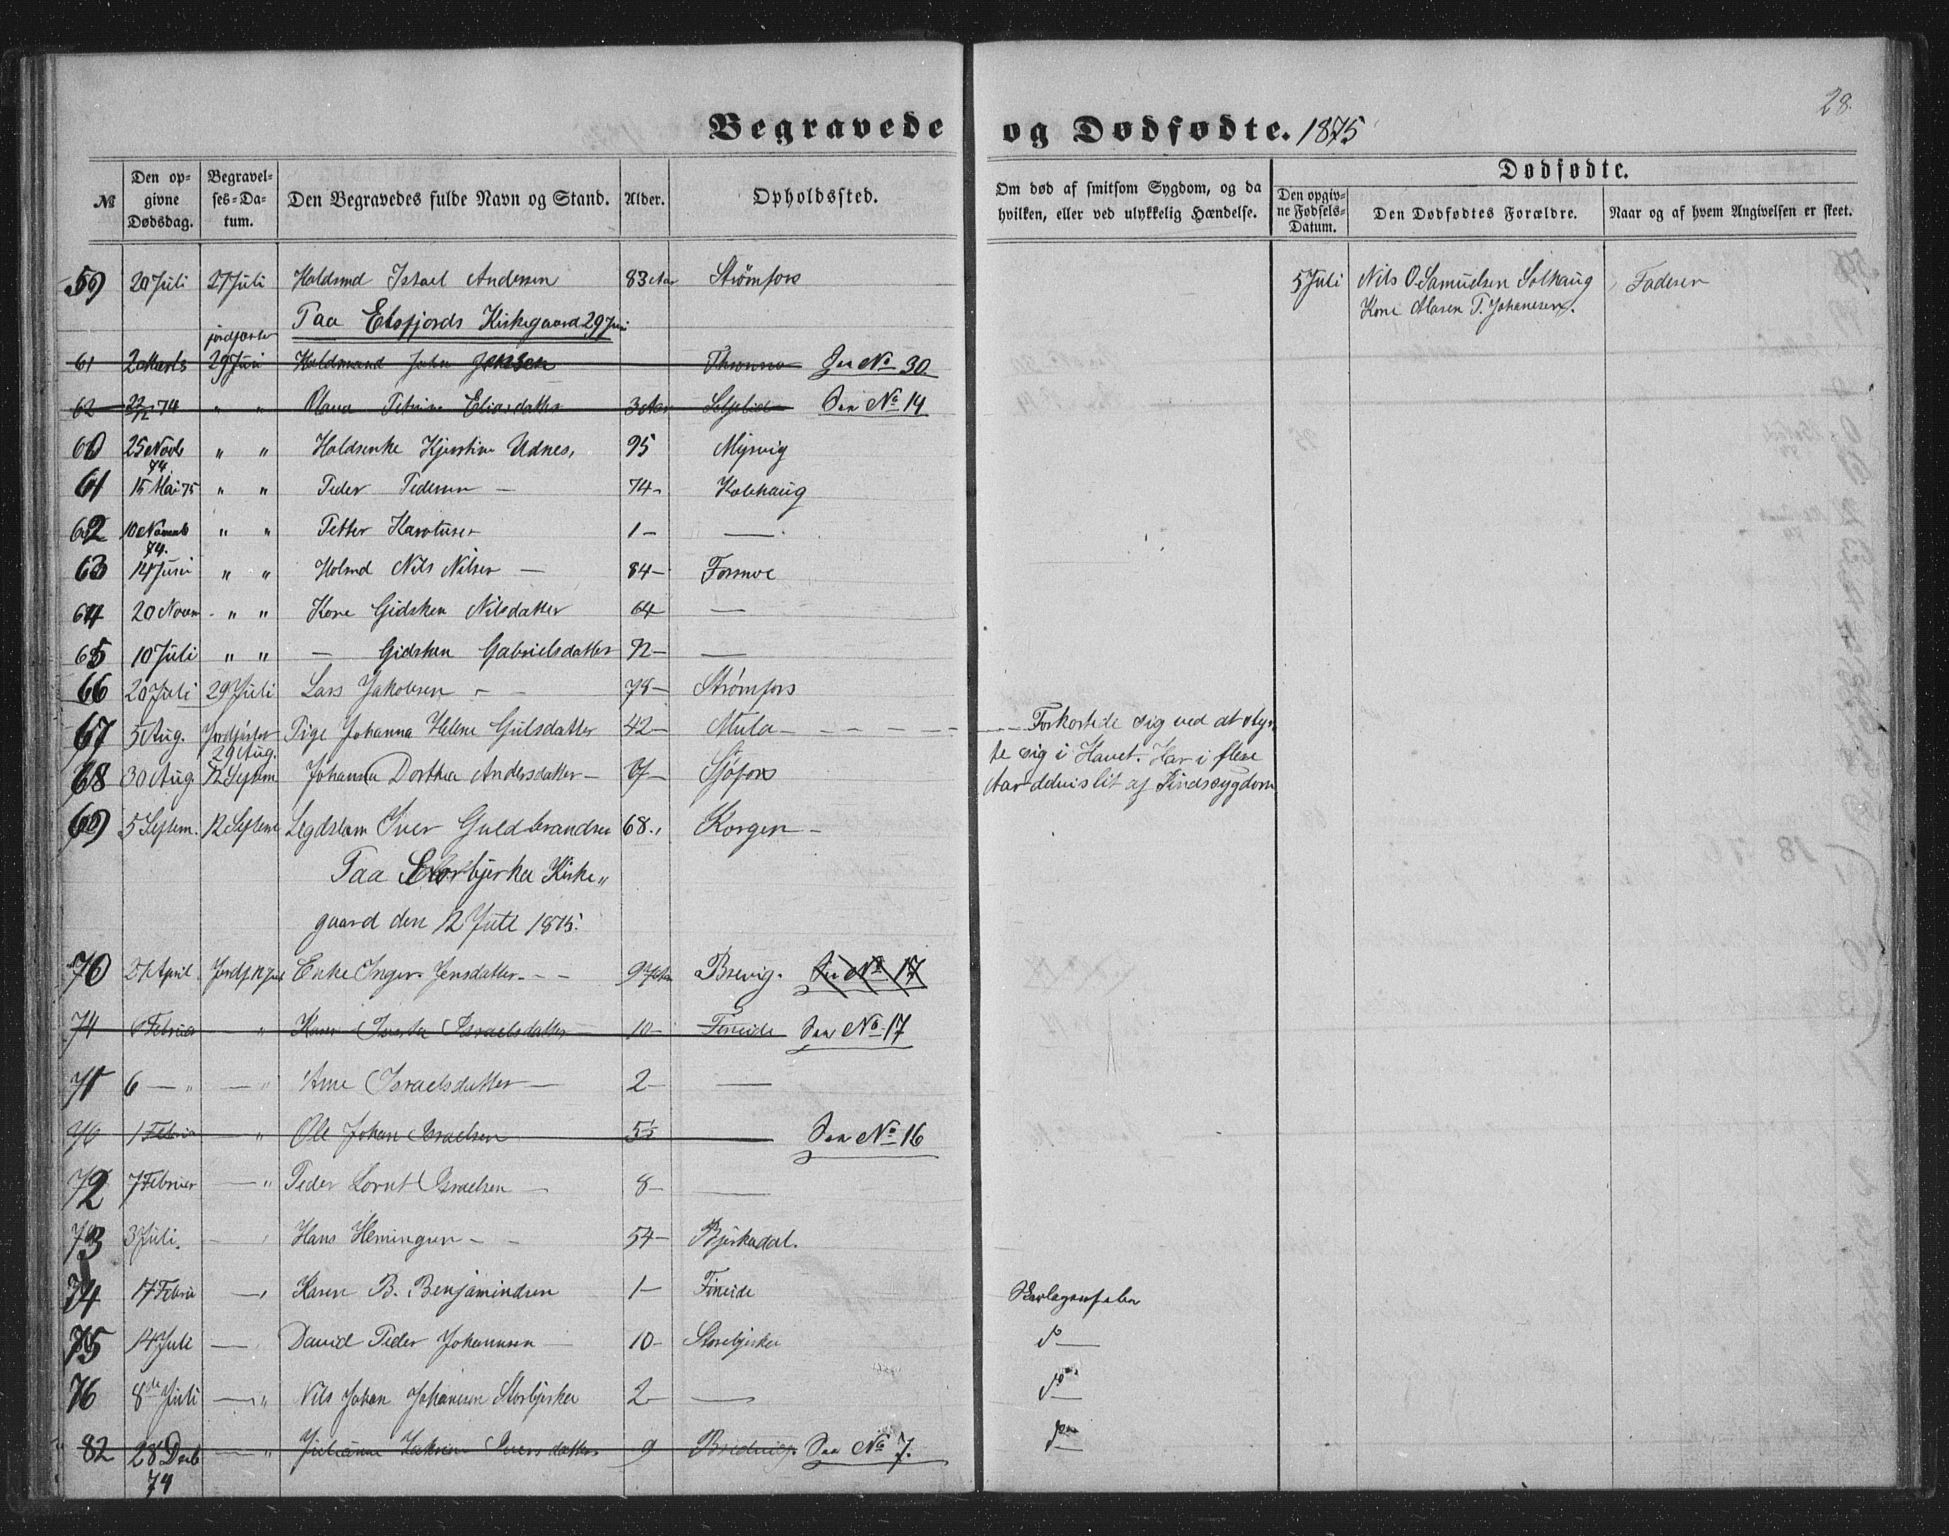 28.
Begravede og Dødfødte. 1875
№ Den opgivne Dødsdag. Begravelses-Datum. Den Begravedes fulde Navn og Stand. Alder. Opholdssted. Om død af smitsom Sygdom, og da hvilken, eller ved ulykkelig Hændelse. Dødfødte.
Den opgivne Fødsels-Datum. Den Dødfødtes Forældre. Naar og af hvem Angivelsen er skeet.
59 20 Juli 27 Juli Holdsmd Israel Andersen 83 Aar Strømfors 5 Juli Nils O. Samuelsen Solhaug Faderen
Kone Maren P. Johanesen.
Paa Elsfjords Kirkegaard 29 Juni
jordfæstet
61 2 Marts 29 Juni Holdsmand John Jensen See No 30.
62 22/12 74 " " Petrine Eliasdatter 3 Aar See No 14
60 25 Novb 74. " " Holdsenke Kjerstine Udnes, 95 Myrvig
61 15 Mai 75 " " Peder Pedersen — 74 - Kolehaug
62 10 74. " " Petter 1 — —
63 14 Juni " " Holmd Nils Nilsen — 84 — Forsmoe
64 20 Novem " " Kone Gidsken Nilsdatter 64 —
65 10 Juli " " — Gidsken Gabrielsdatter 72 — —
66 20 Juli 29 Juli Lars Jakobsen - - 78 — Strømfors
67 5 Aug. Jordfæstet 29 Aug. Pige Johanna Helene Gulsdatter 42 — Mula — — — — — Forkortede sig ved at styr-
te sig i Havet. Har i flere
68 30 Aug 12 Septem Johanna Dorthea Andersdatter — Sjøfors
Aar delvis lit af Sindssygdom
69 5 Septem. 12 Septem Legdslem Iver Guldbrandsen 68 Korgen —
Paa Storbjerka Kirke
gaard den 12 Juli 1875.
70 21 April Jordf. 12 Juli Enke Inger Jensdatter - - Brevig. See No 17
74 6 Februar — " Karen Israelsdatter 10 — Fineide See No 17
71 6 — " — " Ane Israelsdatter — 2 — —
76 1 Februar — " Ole Johan Israelsen — See No 16
72 7 Februar — " Peder Lornt Israelsen — 8 — —
73 3 Juli. — Hans Hemingsen - - 54 — Bjerkadal.
74 17 Februar — Karen B. Benjaminsen 1 — Fineide Skarlagensfeber
75 14 Juli — David Peder Johannesen — 10 — Storebjerka do —
76 8de Juli — " Nils Johan Johanesen Storbjerka 2 — — do —
82 28 Decb 74 — " Julianne Iversdatter 9 See No 7. do